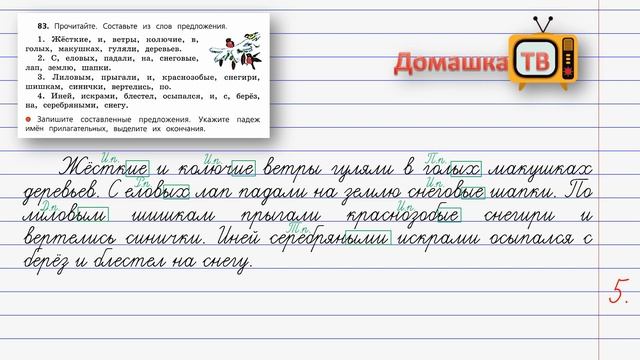 83. Прочитайте. Составьте из слов предложения.
1. Жёсткие, и, ветры, колючие, в,
голых, макушках, гуляли, деревьев.
2. С, еловых, падали, на, снеговые,
лап, землю, шапки.
3. Лиловым, прыгали, и, краснозобые, снегири,
шишкам, синички, вертелись, по.
4. Иней, искрами, блестел, осыпался, и, с, берёз,
на, серебряными, снегу.
Запишите составленные предложения. Укажите падеж
имён прилагательных, выделите их окончания.
Домашка ТВ
И.п. И.п. П.п.
Жёсткие и колючие ветры гуляли в голых макушках
Р.п. И.п.
деревьев. С еловых лап падали на землю снеговые шапки. По
Д.п. И.п.
лиловым шишкам прыгали краснозобые снегири и
Т.п.
вертелись синички. Иней серебряными искрами осыпался с
берёз и блестел на снегу.
5.